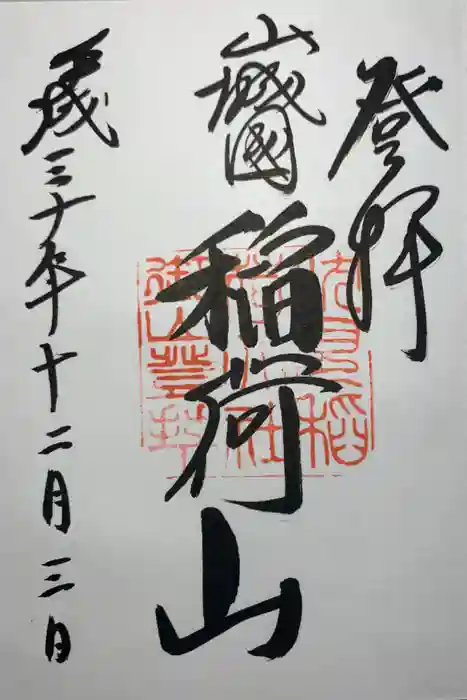 登拝
山城國
稲荷山
平成三十年十二月三日